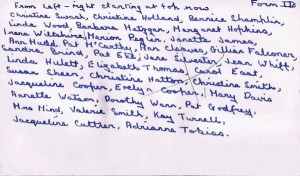 From left - right starting at top row Form IID
Christine Surah, Christine Holland, Bernice Shamplin,
Linda Wood, Barbara Metgger, Margaret Hopkins,
Irene Wiltshire, Marion Pagler, Janette Jarman,
Ann Hudd, Pat McCarthy, Ann Cleaves, Gillian Falconer,
Sandra Bird, Pat Eve, Jane Silvester, Jean Whiff,
Linda Hulett, Elizabeth Thomas, Carol East,
Susan Sheen, Christine Hatton, Christine Smith,
Jacqueline Cooper, Evelyn Cooper, Mary Davis
Annette Watson, Dorothy Wann, Pat Godfrey,
Miss Mind, Valerie Smith, Kay Turnell,
Jacqueline Cuttler, Adrianne Tobias.